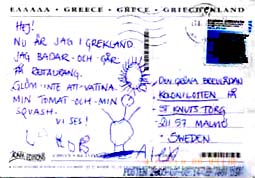 ΕΛΛΑΔΑ • GREECE • GRÈCE • GRIECHENLAND
Hej!
NU ÄR JAG I GREKLAND
JAG BADAR OCH GÅR
PÅ RESTAURANG.
GLÖM INTE ATT VATTNA
MIN TOMAT OCH MIN
SQUASH.
VI SES!
DEN GRÖNA BREVLÅDAN
KOLONILOTTEN PÅ
ST KNUTS TORG
211 57 MALMÖ
SWEDEN